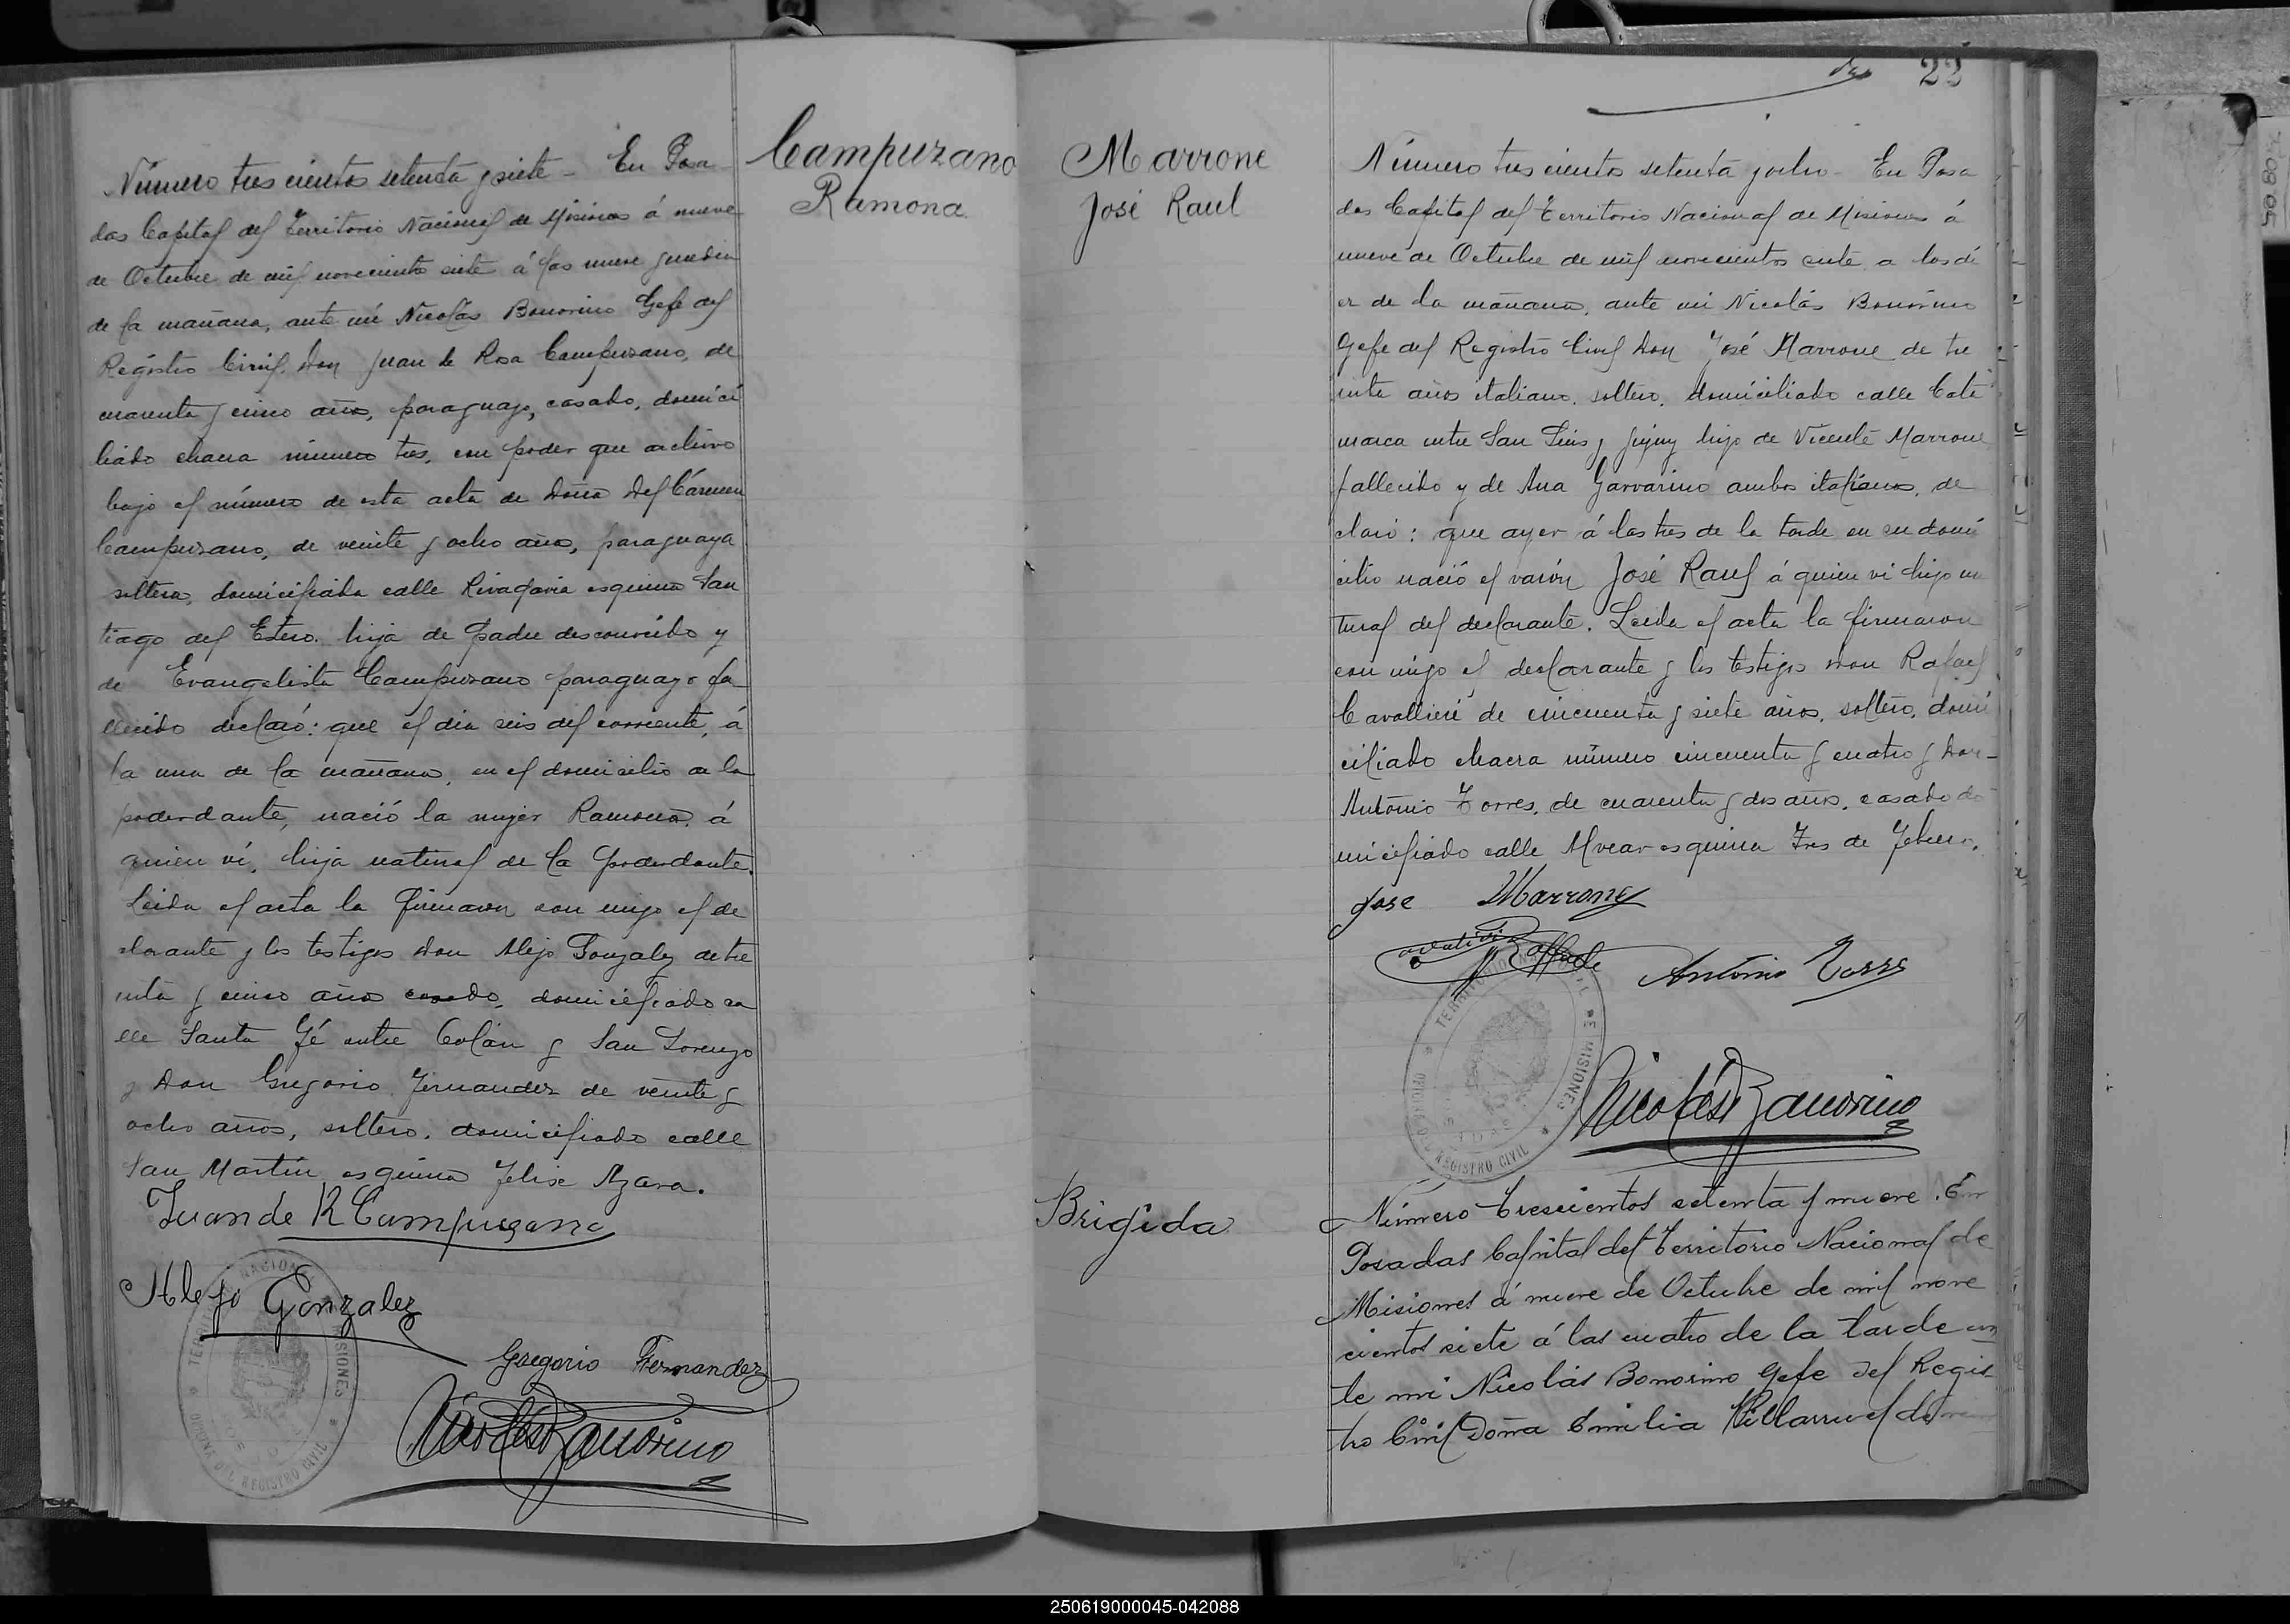 Campuzano
Ramona
Número tres cientos setenta y siete - En Posa
das Capital del Territorio Nacional de Misiones á nueve
de Octubre de mil novecientos siete á las nueve y media
de la mañana, ante mí Nicolás Bonorino Gefe del
Registro Civil, Don Juan de Rosa Campuzano, de
cuarenta y cinco años, paraguayo, casado, domici
liado chacra número tres, con poder que archivo
bajo el número de esta acta de Doña Del Cármen
Campuzano, de veinte y ocho años, paraguaya
soltera, domiciliada calle Rivadavia esquina San
tiago del Estero. hija de padre desconocido y
de Evangelista Campuzano paraguayo fa
llecido declaró: que el dia seis del corriente, á
la una de la mañana, en el domicilio de la
poderdante, nació la mujer Ramona, á
quien ví, hija natural de la poderdante.
Leida el acta la firmaron con migo el de
clarante y los testigos Don Alejo Gonzalez de tre
inta y cinco años casado, domiciliado ca
lle Santa Fé entre Colón y San Lorenzo
y Don Gregorio Fernandez de veinte y
ocho años, soltero, domiciliado calle
San Martin esquina Felix Azara.
Juan de R Campuzano
Alejo Gonzalez
Gregorio Fernandez
Nicolás Bonorino
TERRITORIO NACIONAL DE MISIONES
OFICINA DEL REGISTRO CIVIL
22
Marrone
José Raul
Número tres cientos setenta y ocho - En Posa
das Capital del Territorio Nacional de Misiones á
nueve de Octubre de mil novecientos siete a las di
ez de la mañana, ante mi Nicolás Bonorino
Gefe del Registro Civil Don José Marrone de tre
inta años italiano, soltero, domiciliado calle Cata
marca entre San Luis y Jujuy hijo de Vicente Marrone
fallecido y de Ana Garvarino ambos italianos, de
claró: que ayer á las tres de la tarde en su domi
cilio nació el varón José Raul á quien vi hijo na
tural del declarante. Leida el acta la firmaron
con migo el declarante y los testigos Don Rafael
Cavallieri de cincuenta y siete años, soltero, domi
ciliado chacra número cincuenta y cuatro y Don
Antonio Torres, de cuarenta y dos años, casado do
miciliado calle Alvear esquina Tres de Febrero.
Jose Marrone
Antonio Torres
TERRITORIO NACIONAL DE MISIONES
OFICINA DEL REGISTRO CIVIL
Nicolás Bonorino
Brigida
Número trescientos setenta y nueve. En
Posadas Capital del Territorio Nacional de
Misiones á nueve de Octubre de mil nove
cientos siete á las cuatro de la tarde an
te mi Nicolás Bonorino Gefe del Regis
tro Civil Doña Emilia Villarruel de
250619000045-042088